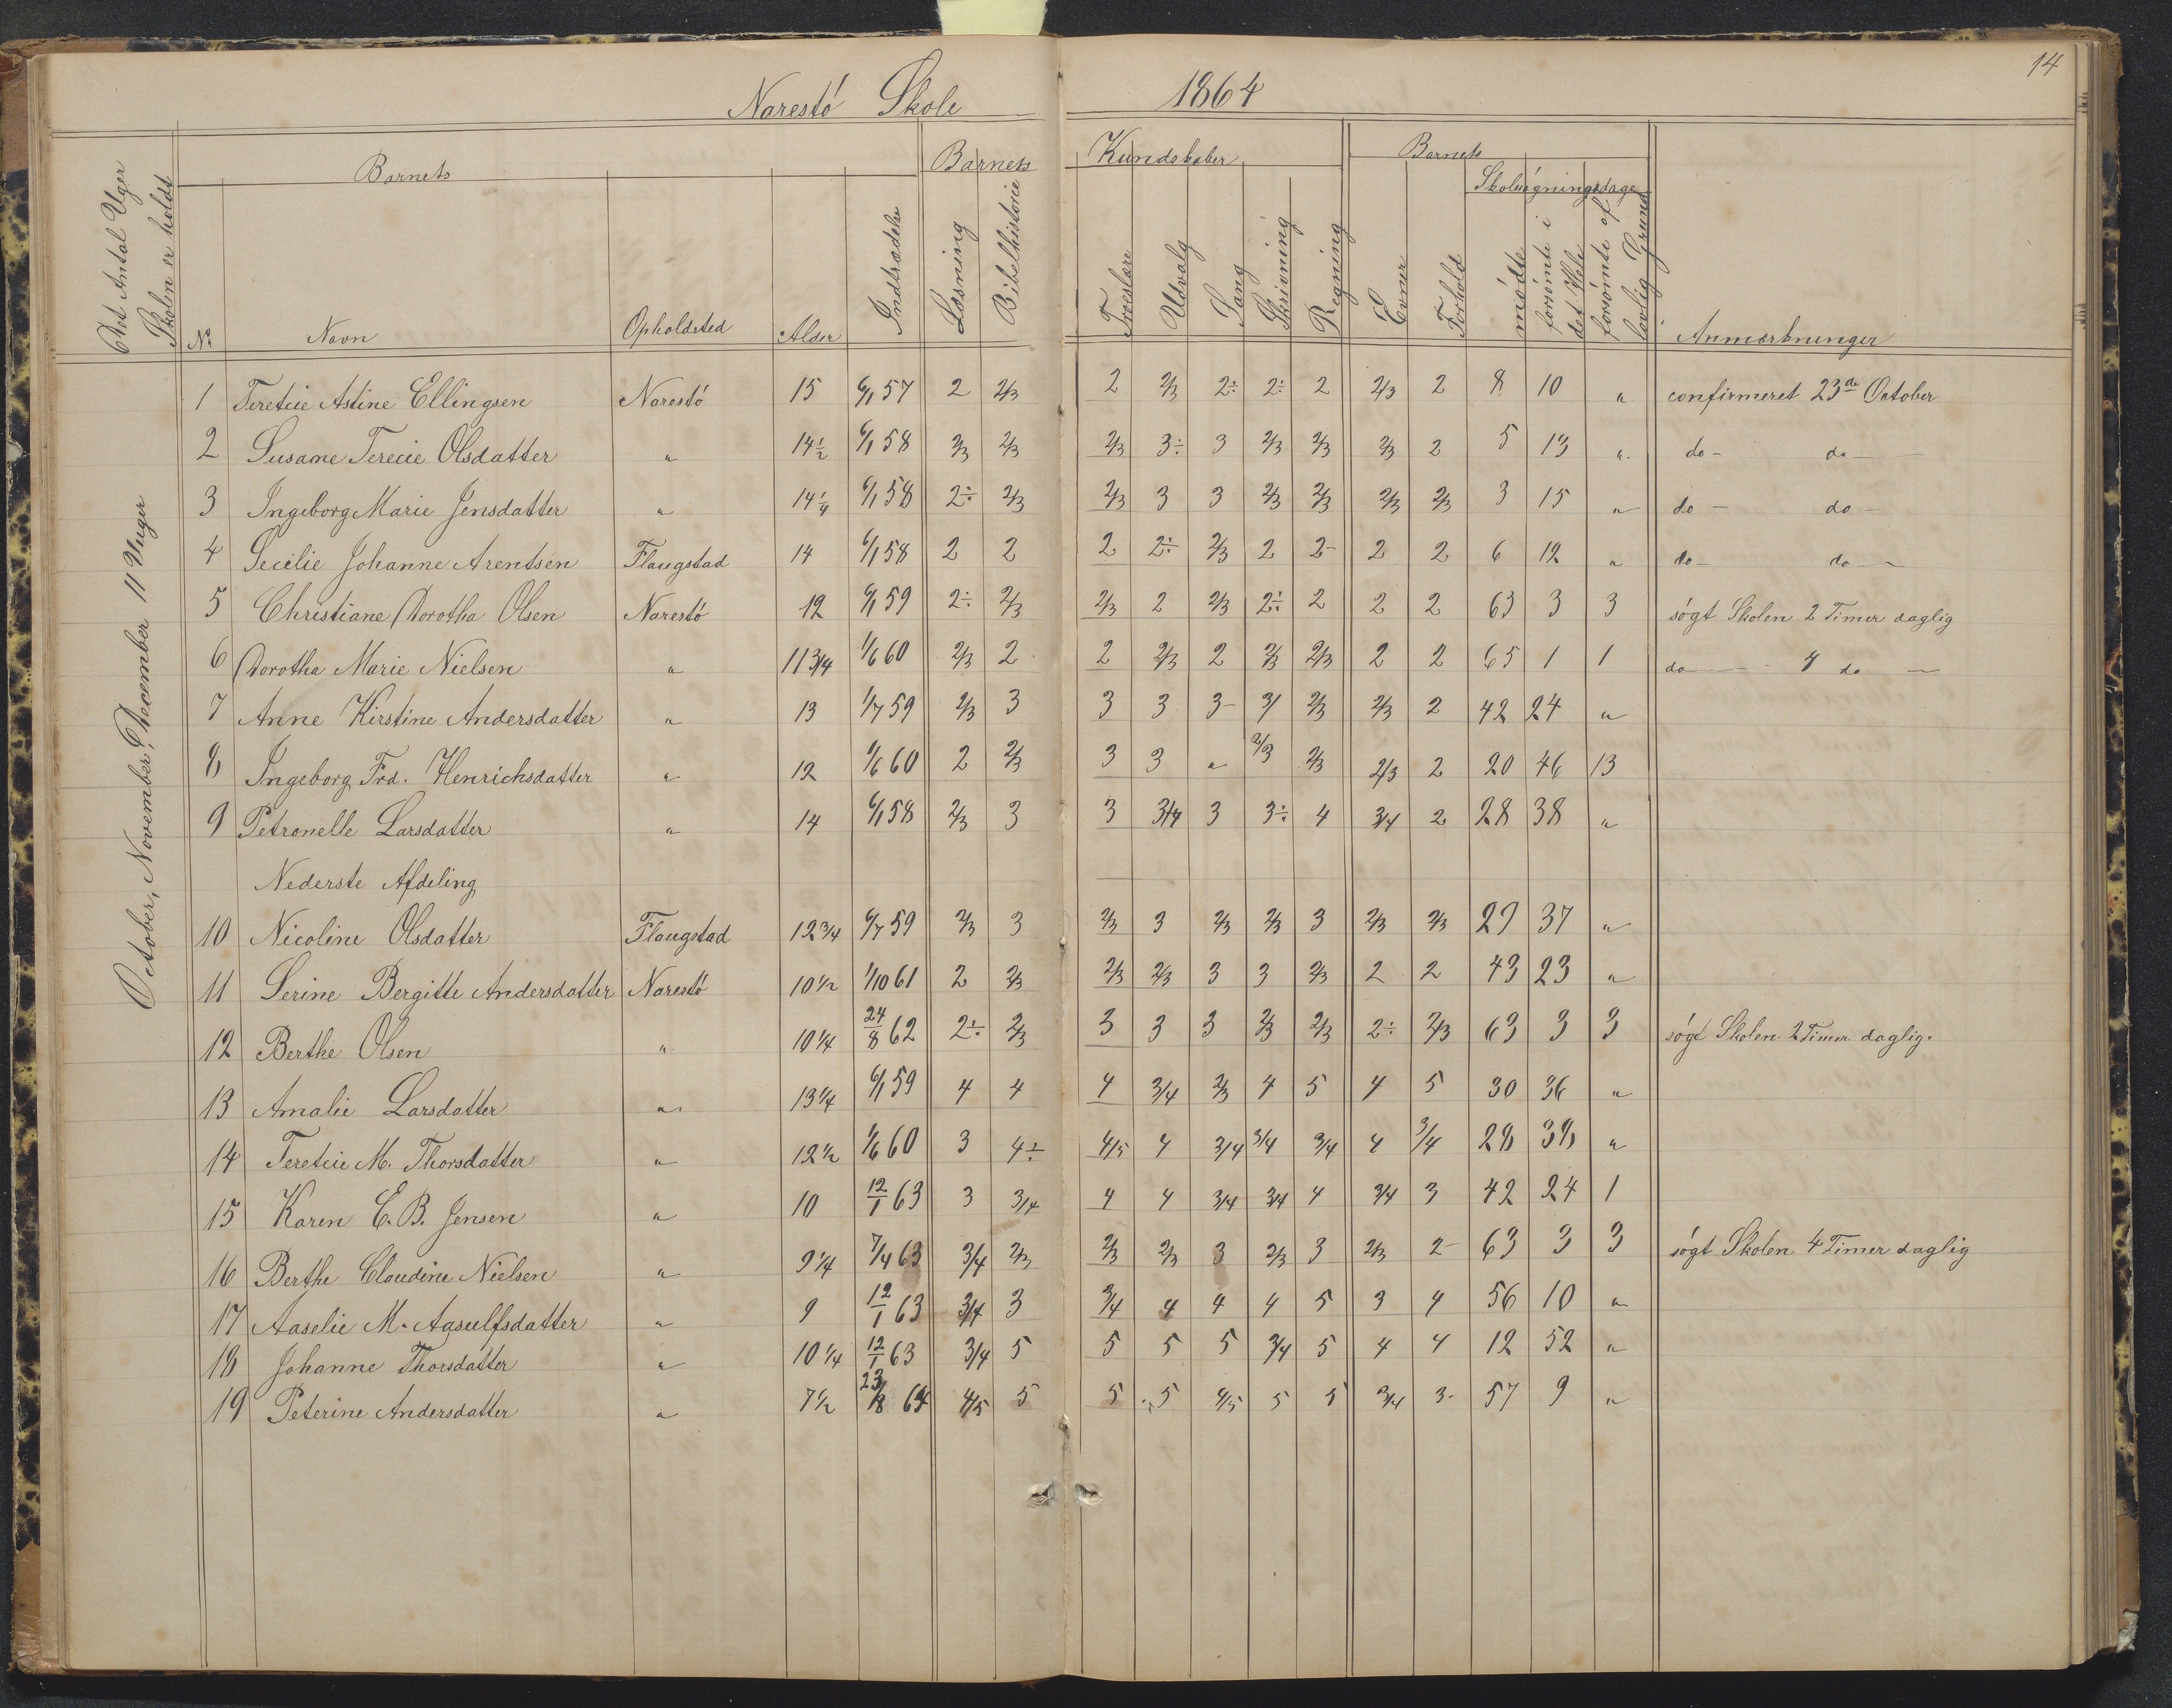 14
Narestö Skole 1864
Det Antal Uger Skolen er holdt
Barnets
Barnets Kundskaber
Barnets
Skolesøgningsdage
No Navn Opholdsted Alder Indtrædelse Læsning Bibelhistorie Troeslære Udvalg Sang Skrivning Regning Evner Forhold mødte forsømte i det Hele forsømte af lovlig Grund Anmærkninger
October, November, December 11 Uger
1 Teretcie Astine Ellingsen Narestö 15 6/1 57 2 2/3 2 2/3 2÷ 2÷ 2 2/3 2 8 10 " confirmeret 23de October
2 Susane Terecie Olsdatter " 14 1/2 6/1 58 2/3 2/3 2/3 3÷ 3 2/3 2/3 2/3 2 5 13 " do - do -
3 Ingeborg Marie Jensdatter " 14 1/4 6/1 58 2÷ 2/3 2/3 3 3 2/3 2/3 2/3 2/3 3 15 " do - do -
4 Secilie Johanne Arentsen Flaugstad 14 6/1 58 2 2 2 2÷ 2/3 2 2- 2 2 6 12 " do - do -
5 Christiane Dorotha Olsen Narestö 12 6/1 59 2÷ 2/3 2/3 2 2/3 2÷ 2 2 2 63 3 3 søgt Skolen 2 Timer daglig
6 Dorotha Marie Nielsen " 11 3/4 1/6 60 2/3 2 2 2/3 2 2/3 2/3 2 2 65 1 1 do - 4 do -
7 Anne Kirstine Andersdatter " 13 1/7 59 2/3 3 3 3 3- 3/ 2/3 2/3 2 42 24 "
8 Ingeborg Frd. Henrichsdatter " 12 1/6 60 2 2/3 3 3 " 2/3 2/3 2/3 2 20 46 13
9 Petronelle Larsdatter " 14 6/1 58 2/3 3 3 3/4 3 3÷ 4 3/4 2 28 38 "
Nederste Afdeling
10 Nicoline Olsdatter Flaugstad 12 3/4 6/7 59 2/3 3 2/3 3 2/3 2/3 3 2/3 2/3 29 37 "
11 Serine Bergitte Andersdatter Narestö 10 1/2 1/10 61 2 2/3 2/3 2/3 3 3 2/3 2 2 43 23 "
12 Berthe Olsen " 10 1/4 24/8 62 2÷ 2/3 3 3 3 2/3 2/3 2÷ 2/3 63 3 3 søgt Skolen 2 Timer daglig.
13 Amalie Larsdatter " 13 1/4 6/1 59 4 4 4 3/4 2/3 4 5 4 5 30 36 "
14 Teretcie M. Thorsdatter " 12 1/2 1/6 60 3 4÷ 4/5 4 3/4 3/4 3/4 4 3/4 28 38 "
15 Karen E. B. Jensen " 10 12/1 63 3 3/4 4 4 3/4 3/4 4 3/4 3 42 24 1
16 Berthe Claudine Nielsen " 9 1/4 7/4 63 3/4 2/3 2/3 2/3 3 2/3 3 2/3 2- 63 3 3 søgt Skolen 4 Timer daglig
17 Aaselie M. Aasulfsdatter " 9 12/1 63 3/4 3 3/4 4 4 4 5 3 4 56 10 "
18 Johanne Thorsdatter " 10 1/4 12/1 63 3/4 5 5 5 5 3/4 5 4 4 12 52 "
19 Peterine Andersdatter " 7 1/2 23/8 64 4/5 5 5 5 4/5 5 5 3/4 3- 57 9 "